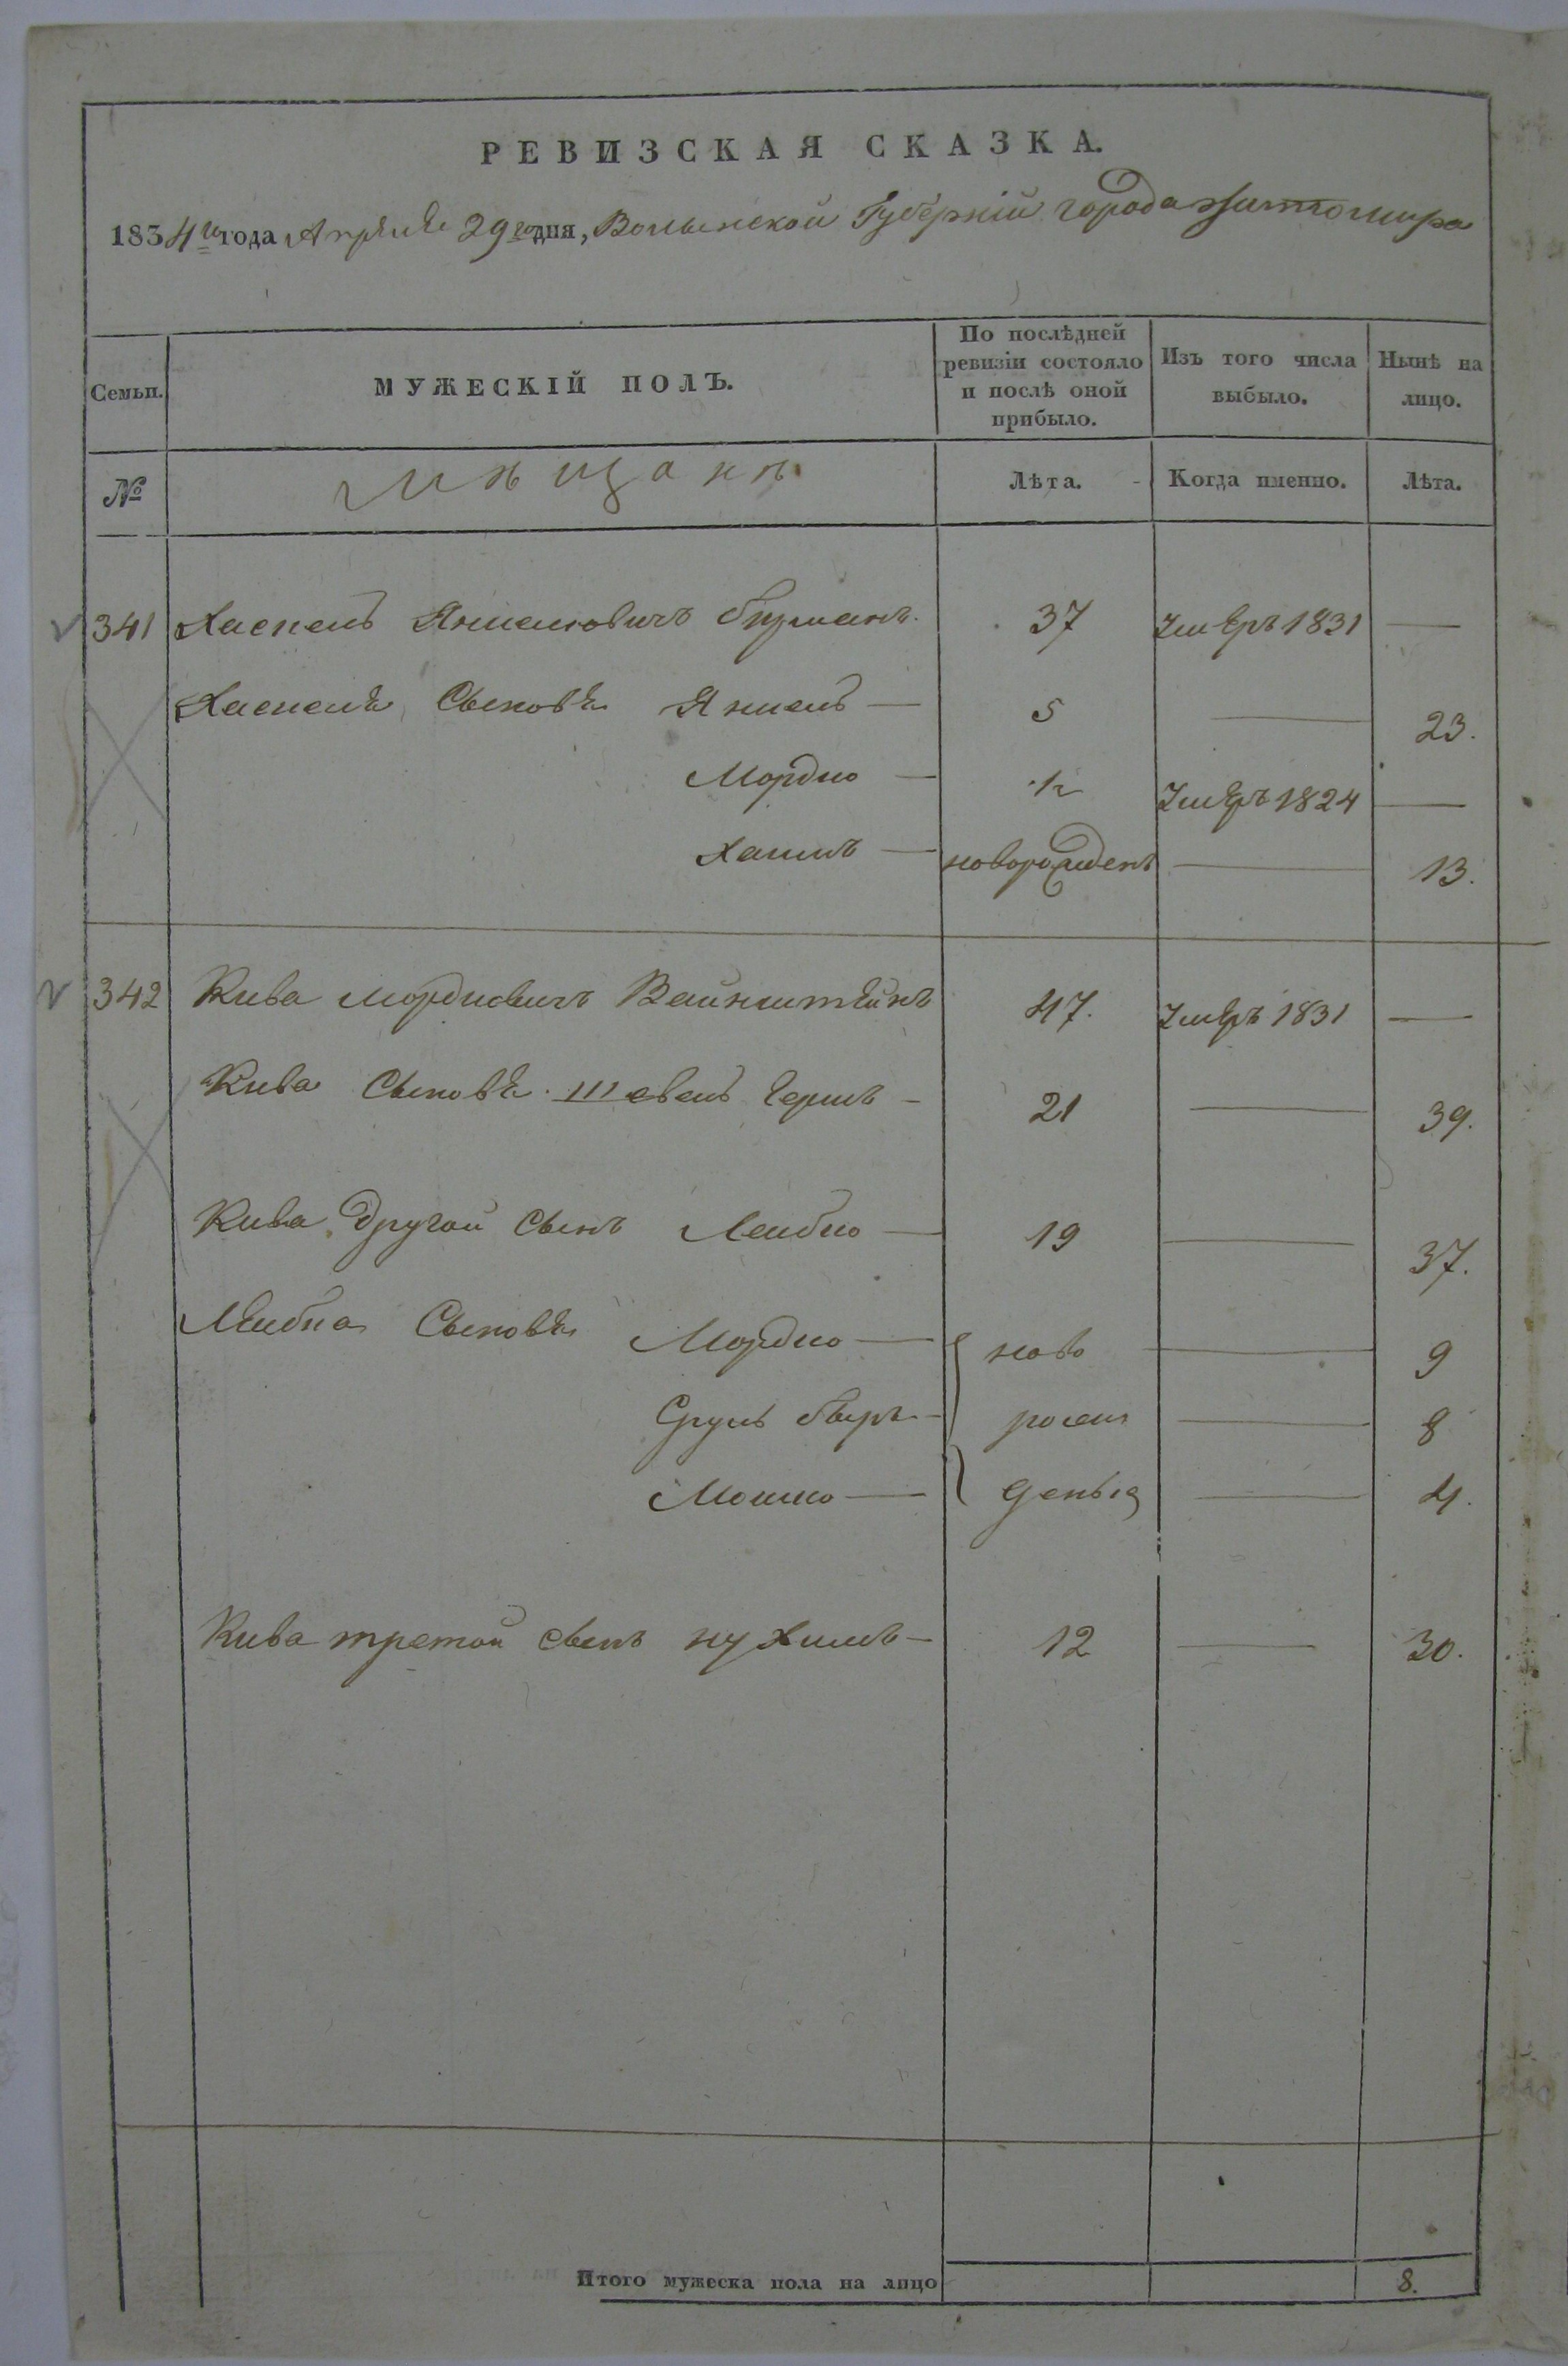 РЕВИЗСКАЯ СКАЗКА.
1834го года Апреля 29го дня, Волынской Губерніи города Житомира
Семьи. МУЖЕСКІЙ ПОЛЪ. По послѣдней ревизіи состояло и послѣ оной прибыло. Изъ того числа выбыло. Нынѣ на лицо.
№ Мѣщанъ Лѣта. Когда именно. Лѣта.
341 Хаскель Янкелевичъ 37 Умеръ 1831 —
Хаскеля Сыновья Янкель — 5 — 23.
Мордко — ½ Умеръ 1824 —
Хаимъ — новорожденъ — 13.
342 Кива Мордковичъ Вайнштейнъ 47. Умеръ 1831 —
Кива Сыновья Шевель Гершъ — 21 — 39.
Кива другой сынъ Лейбко — 19 — 37.
Лейбка Сыновья Мордко — ново — 9
Сруль Беръ — рожен — 8
Мошко — — 4.
Кива третой сынъ Нухимъ — 12 — 30.
Итого мужеска пола на лицо 8.